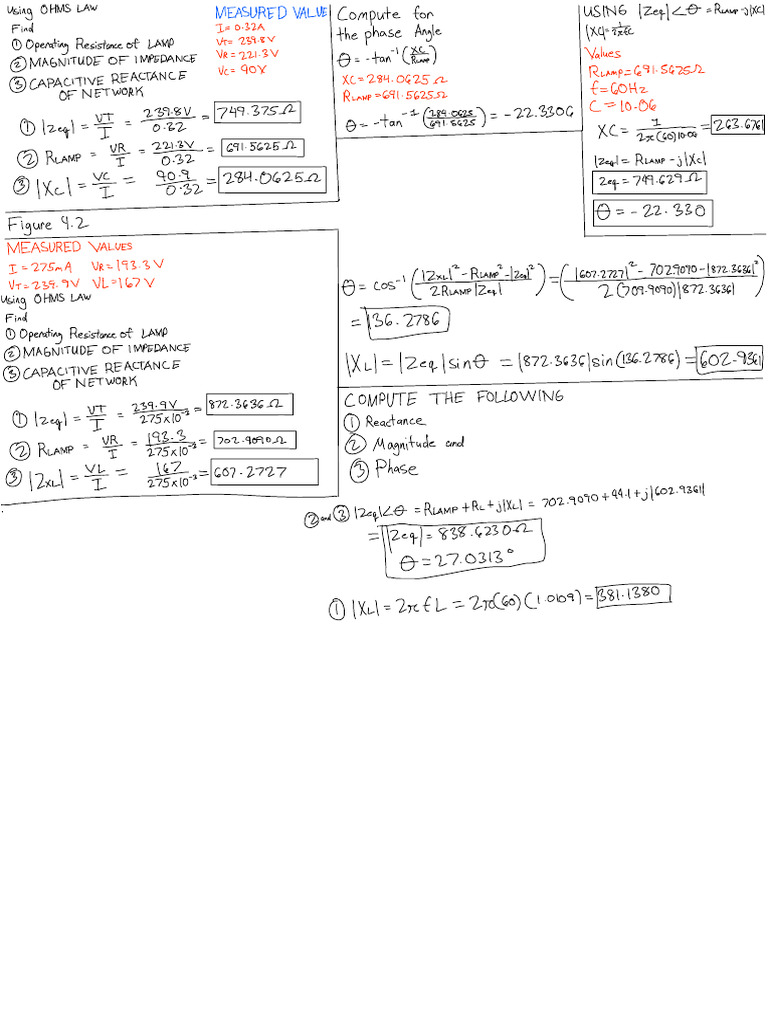 Using OHMS LAW
Find
① Operating Resistance of LAMP
② MAGNITUDE OF IMPEDANCE
③ CAPACITIVE REACTANCE
OF NETWORK
MEASURED VALUE
I = 0.32A
VT = 239.8V
VR = 221.3V
VC = 90V
① |Zeq| = VT/I = 239.8V/0.32 = 749.375Ω
② RLAMP = VR/I = 221.3V/0.32 = 691.5625Ω
③ |XC| = VC/I = 90.9/0.32 = 284.0625Ω
Compute for
the phase Angle
θ = -tan⁻¹(XC/RLAMP)
XC = 284.0625Ω
RLAMP = 691.5625Ω
θ = -tan⁻¹(284.0625/691.5625) = -22.3306
USING |Zeq|∠θ = RLAMP-j|XC|
Values
RLAMP = 691.5625Ω
f = 60Hz
C = 10.06
XC = 1/2π(60)10.06 = 263.6761
|Zeq| = RLAMP - j|XC|
Zeq = 749.629Ω
θ = -22.330
Figure 4.2
MEASURED VALUES
I = 275mA VR = 193.3V
VT = 239.9V VL = 167V
Using OHMS LAW
Find
① Operating Resistance of LAMP
② MAGNITUDE OF IMPEDANCE
③ CAPACITIVE REACTANCE
OF NETWORK
① |Zeq| = VT/I = 239.9V/275x10⁻³ = 872.3636Ω
② RLAMP = VR/I = 193.3/275x10⁻³ = 702.9090Ω
③ |ZXL| = VL/I = 167/275x10⁻³ = 607.2727
θ = cos⁻¹(|ZXL|² - RLAMP² - |Zeq|²/2RLAMP|Zeq|) = (|607.2727|² - 702.9090 - |872.3636|²/2(709.9090)|872.3636|)
= 136.2786
|XL| = |Zeq|sinθ = |872.3636|sin(136.2786) = 602.9361
COMPUTE THE FOLLOWING
① Reactance
② Magnitude and
③ Phase
② and ③ |Zeq|∠θ = RLAMP + RL + j|XL| = 702.9090 + 44.1 + j|602.9361|
= |Zeq| = 838.6230Ω
θ = 27.0313°
① |XL| = 2πfL = 2π(60)(1.0109) = 381.1380